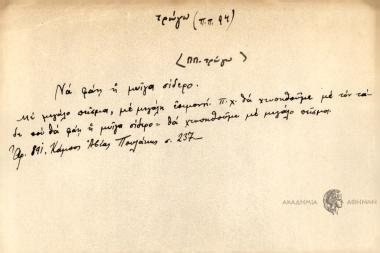 τρώγω (π.π. 94)
<ΠΠ. τρώγω>
Νά φάῃ ἡ μυῖγα σίδερο.
Μέ μεγάλο πεῖσμα, μέ μεγάλη ἐπιμονή π.χ. θά χτυπηθοῦμε μέ τόν τά-
δε πού θά φάῃ ἡ μυῖγα σίδερο = θά χτυπηθοῦμε μέ μεγάλο πεῖσμα.
Ἀρ. 891, Κάμπος Ἀβίας Πουλάκης σ. 237
ΑΚΑΔΗΜΙΑ ΑΘΗΝΩΝ